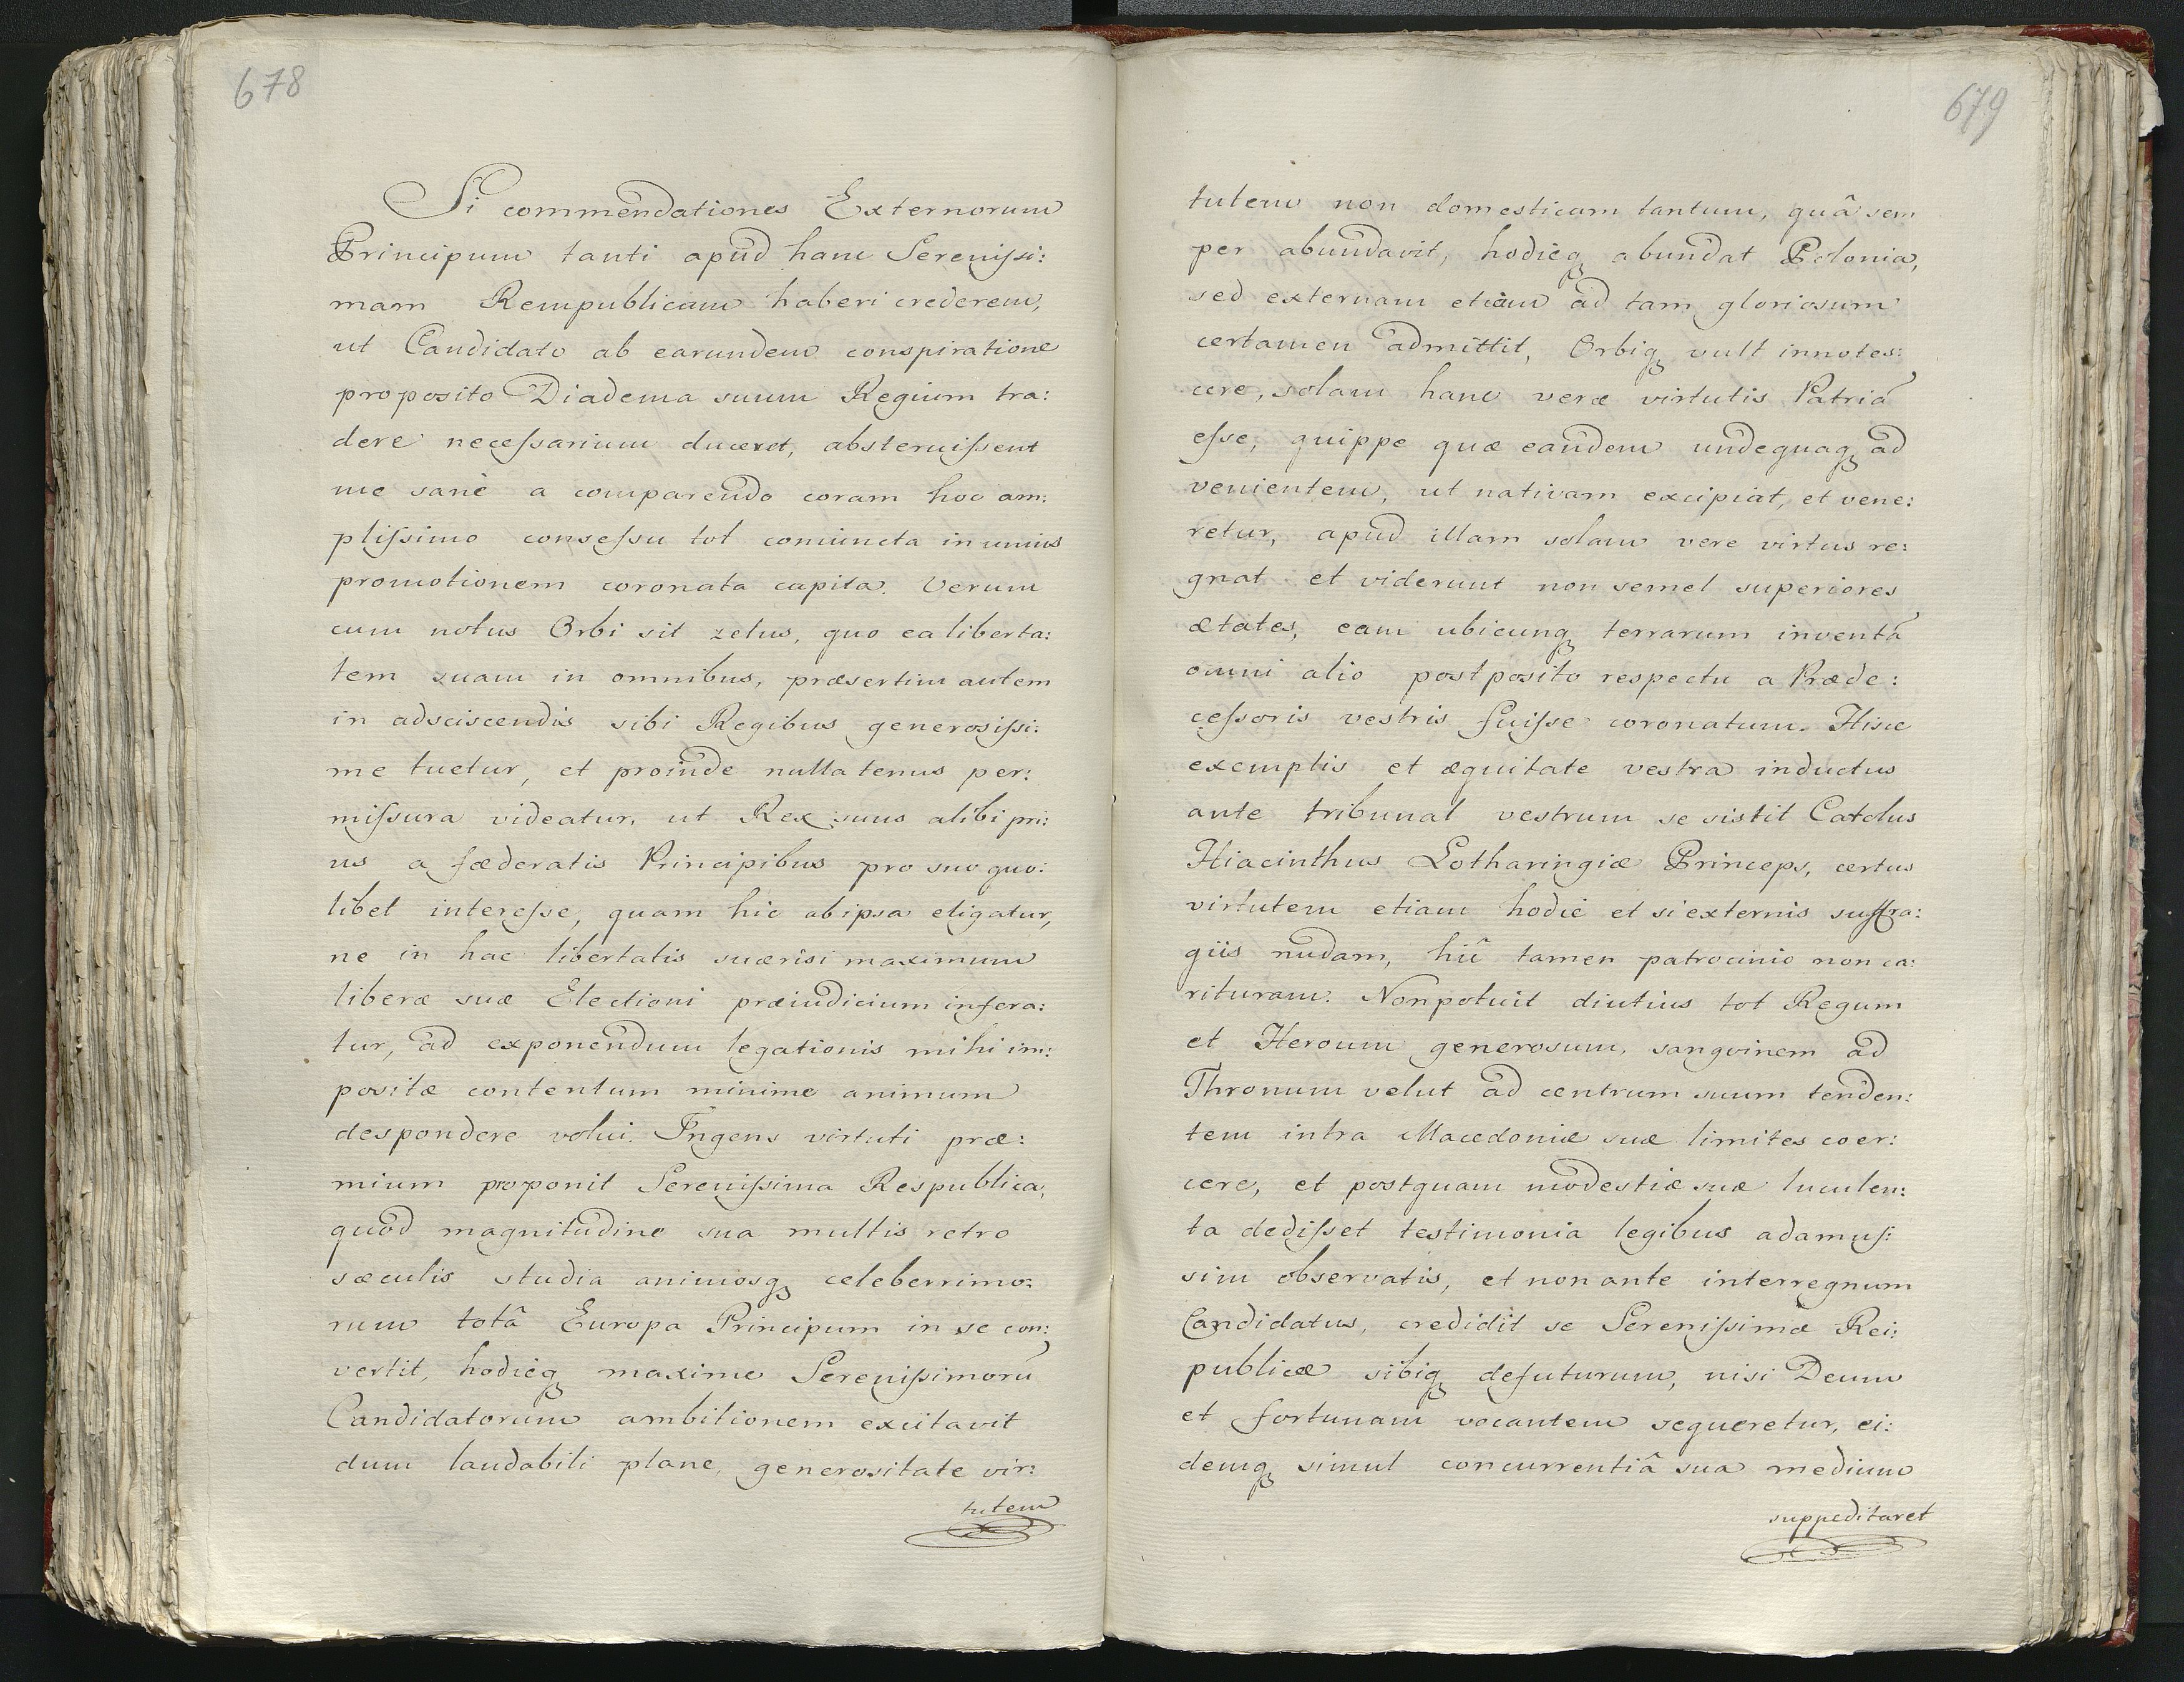 678
Si commendationes Externorum
Principum tanti apud hanc Serenissi:
mam Rempublicam haberi crederem,
ut Candidato ab earundem conspiratione
proposito Diadema suum Regium tra:
dere necessarium duceret, absteruissent
me sanè a comparendo coram hoc am:
plissimo consessu tot coniuncta in unius
promotionem coronata capita. Verum
cum notus Orbi sit zelus, quo ea liberta:
tem suam in omnibus, præsertim autem
in adsciscendis sibi Regibus generosissi:
me tuetur, et proinde nullatenus per:
missura videatur, ut Rex suus alibi pri:
us a fæderatis Principibus pro suo quo:
libet interesse, quam hic ab ipsa eligatur,
ne in hac libertatis suæ risi maximum
liberæ suæ Electioni præiudicium infera:
tur, ad exponendum legationis mihi im:
positæ contentum minime animum
despondere volui. Ingens virtuti præ:
mium proponit Serenissima Respublica,
quod magnitudine sua multis retro
sæculis studia animosq₃ celeberrimo:
rum totâ Europa Principum in se con:
vertit, hodieq₃ maxime Serenissimorū
Candidatorum ambitionem excitavit
dum laudabili plane, generositate vir:
tutem
679
tutem non domesticam tantum, quâ sem
per abundavit, hodieq₃ abundat Polonia,
sed externam etiam ad tam gloriosum
certamen admittit, Orbiq₃ vult innotes:
cere, solam hanc veræ virtutis Patriā
esse, quippe quæ eandem undequaq₃ ad
venientem, ut nativam excipiat, et vene:
retur, apud illam solam vere virtus re:
gnat et viderunt non semel superiores
ætates, eam ubicunq₃ terrarum inventā
omni alio postposito respectu a Præde:
cessoris vestris fuisse coronatum. Hisce
exemplis et æquitate vestra inductus
ante tribunal vestrum se sistit Carolus
Hiacinthus Lotharingiæ Princeps, certus
virtutem etiam hodie et si externis suffra:
giis nudam, hîc tamen patrocinio non ca:
rituram. Non potuit diutius tot Regum
et Heroum generosum, sangvinem ad
Thronum velut ad centrum suum tenden:
tem intra Macedoniæ suæ limites coer:
cere, et postquam modestiæ suæ luculen:
ta dedisset testimonia legibus adamus:
sim observatis, et non ante interregnum
Candidatus, credidit se Serenissimæ Rei:
publicæ sibiq₃ defuturum, nisi Deum
et fortunam vocantem sequeretur, ei:
demq₃ simul concurrentiâ sua medium
suppeditaret